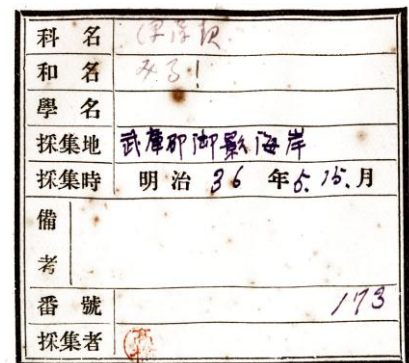 科名
和名 みる!
學名
採集地 武庫郡御影海岸
採集時 明治 36 年 5. 15. 月
備考
番號 173
採集者